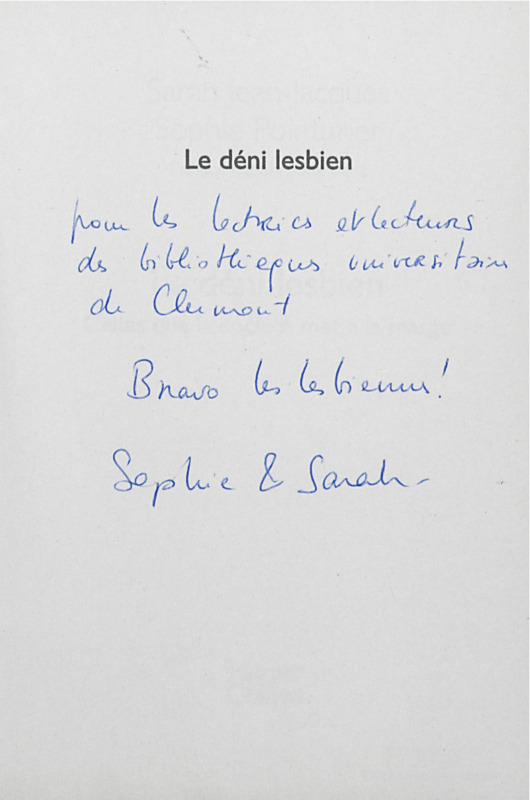 Le déni lesbien
pour les lectrices et lecteurs
des bibliothèques universitaires
de Clermont
Bravo les lesbiennes!
Sophie & Sarah